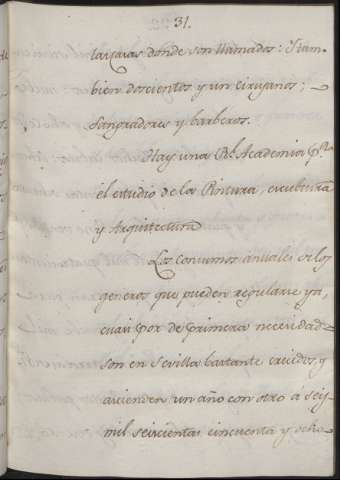 31.
las casas donde son llamados: Y tam-
bien doscientos y un cirujanos;
Sangradores y barberos.
Hay una Rl. Academia pa.
el estudio de la Pintura, escultura
y Arquitectura
Los consumos anuales de los
generos que pueden regularse ya,
cuasi por de primera necesidad
son en Sevilla bastante crecidos, y
ascienden un año con otro á seis
mil seiscientas cincuenta y ocho